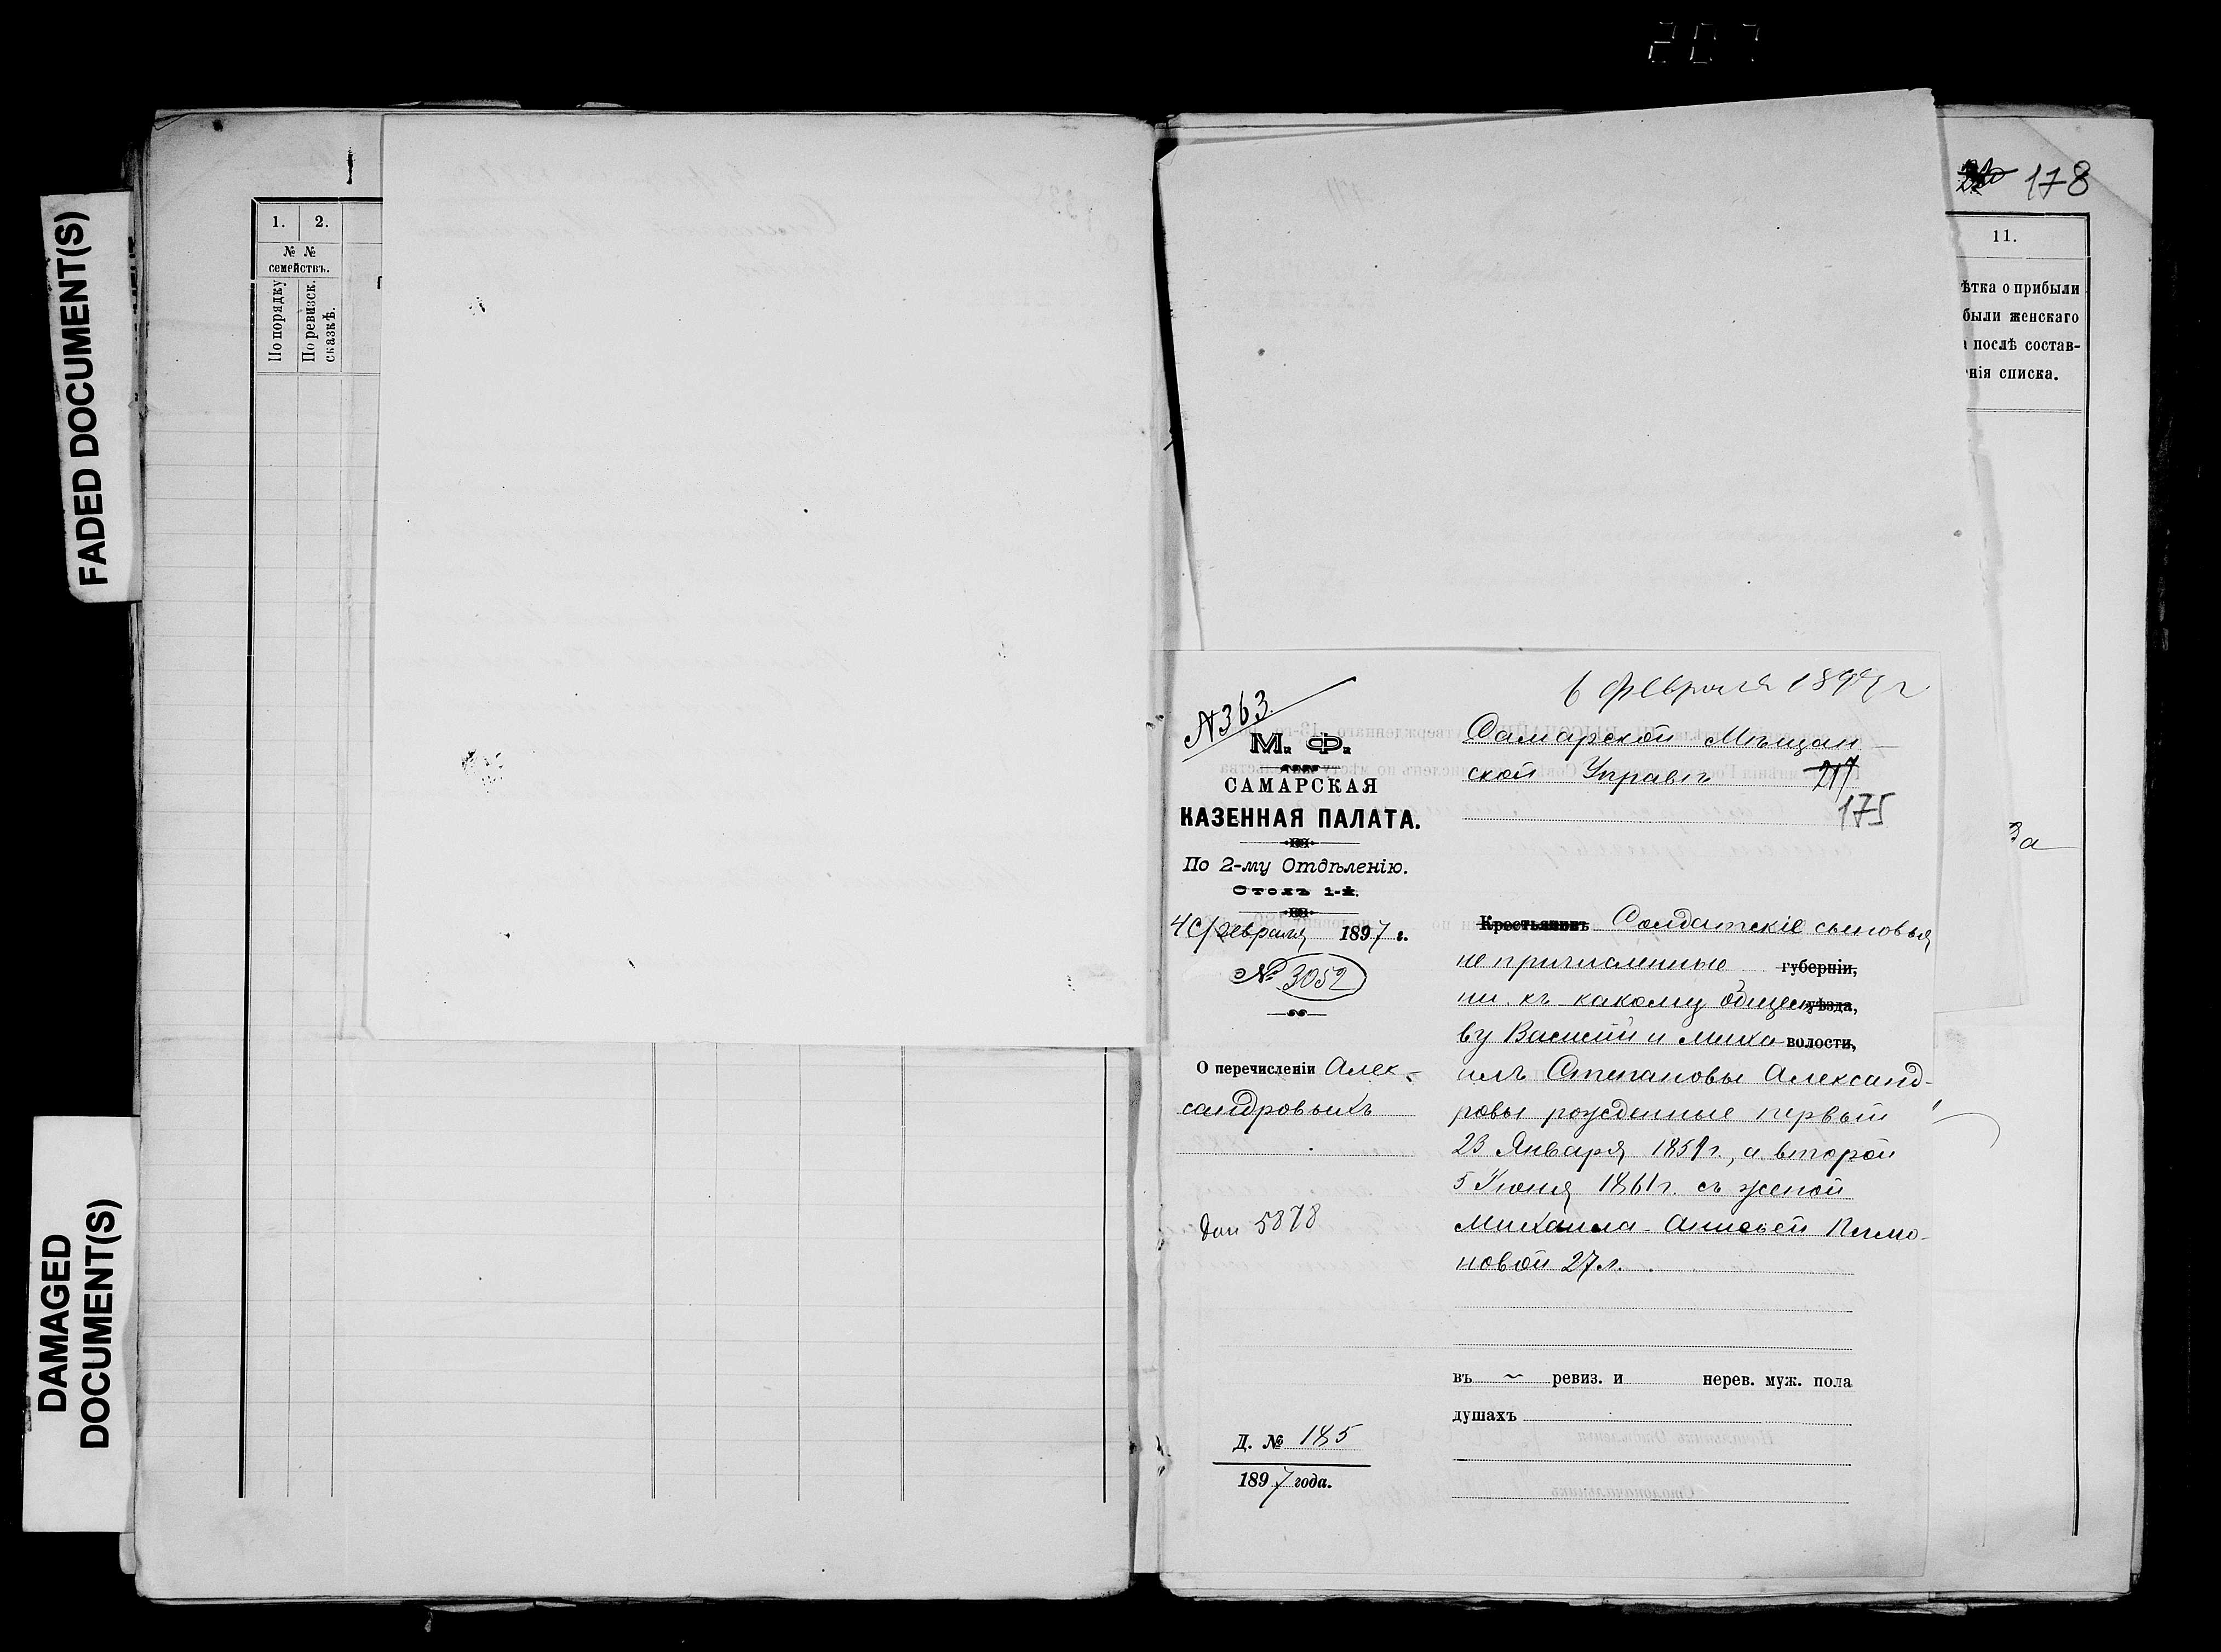 FADED DOCUMENT(S)
DAMAGED
DOCUMENT(S)
1. 2.
№ №
семействъ.
По порядку
По ревизск.
сказкѣ.
178
11.
ѣтка о прибыли
были женскаго
послѣ состав-
нія списка.
За
6 февраля 1897 г
№ 363.
М. Ф.
САМАРСКАЯ
КАЗЕННАЯ ПАЛАТА.
По 2-му Отдѣленію.
Столъ 1-й.
4 февраля 1897 г.
№ 3052
О перечисленіи Алек-
сандровыхъ
5878
Д. № 185
1897 года.
Самарской Мѣщан-
ской Управѣ
217
175
Крестьянинъ Солдатскіе сыновья
не причисленные губерніи,
ни къ какому общест уѣзда,
ву Василій и Миха- волости,
илъ Степановы Александ-
ровы рожденные первый
23 Января 1859 г., а второй
5 Июня 1861 г. съ женой
Михаила - Анисьей Пимо-
новой 27 л.
въ ревиз. и нерев. муж. пола
душахъ